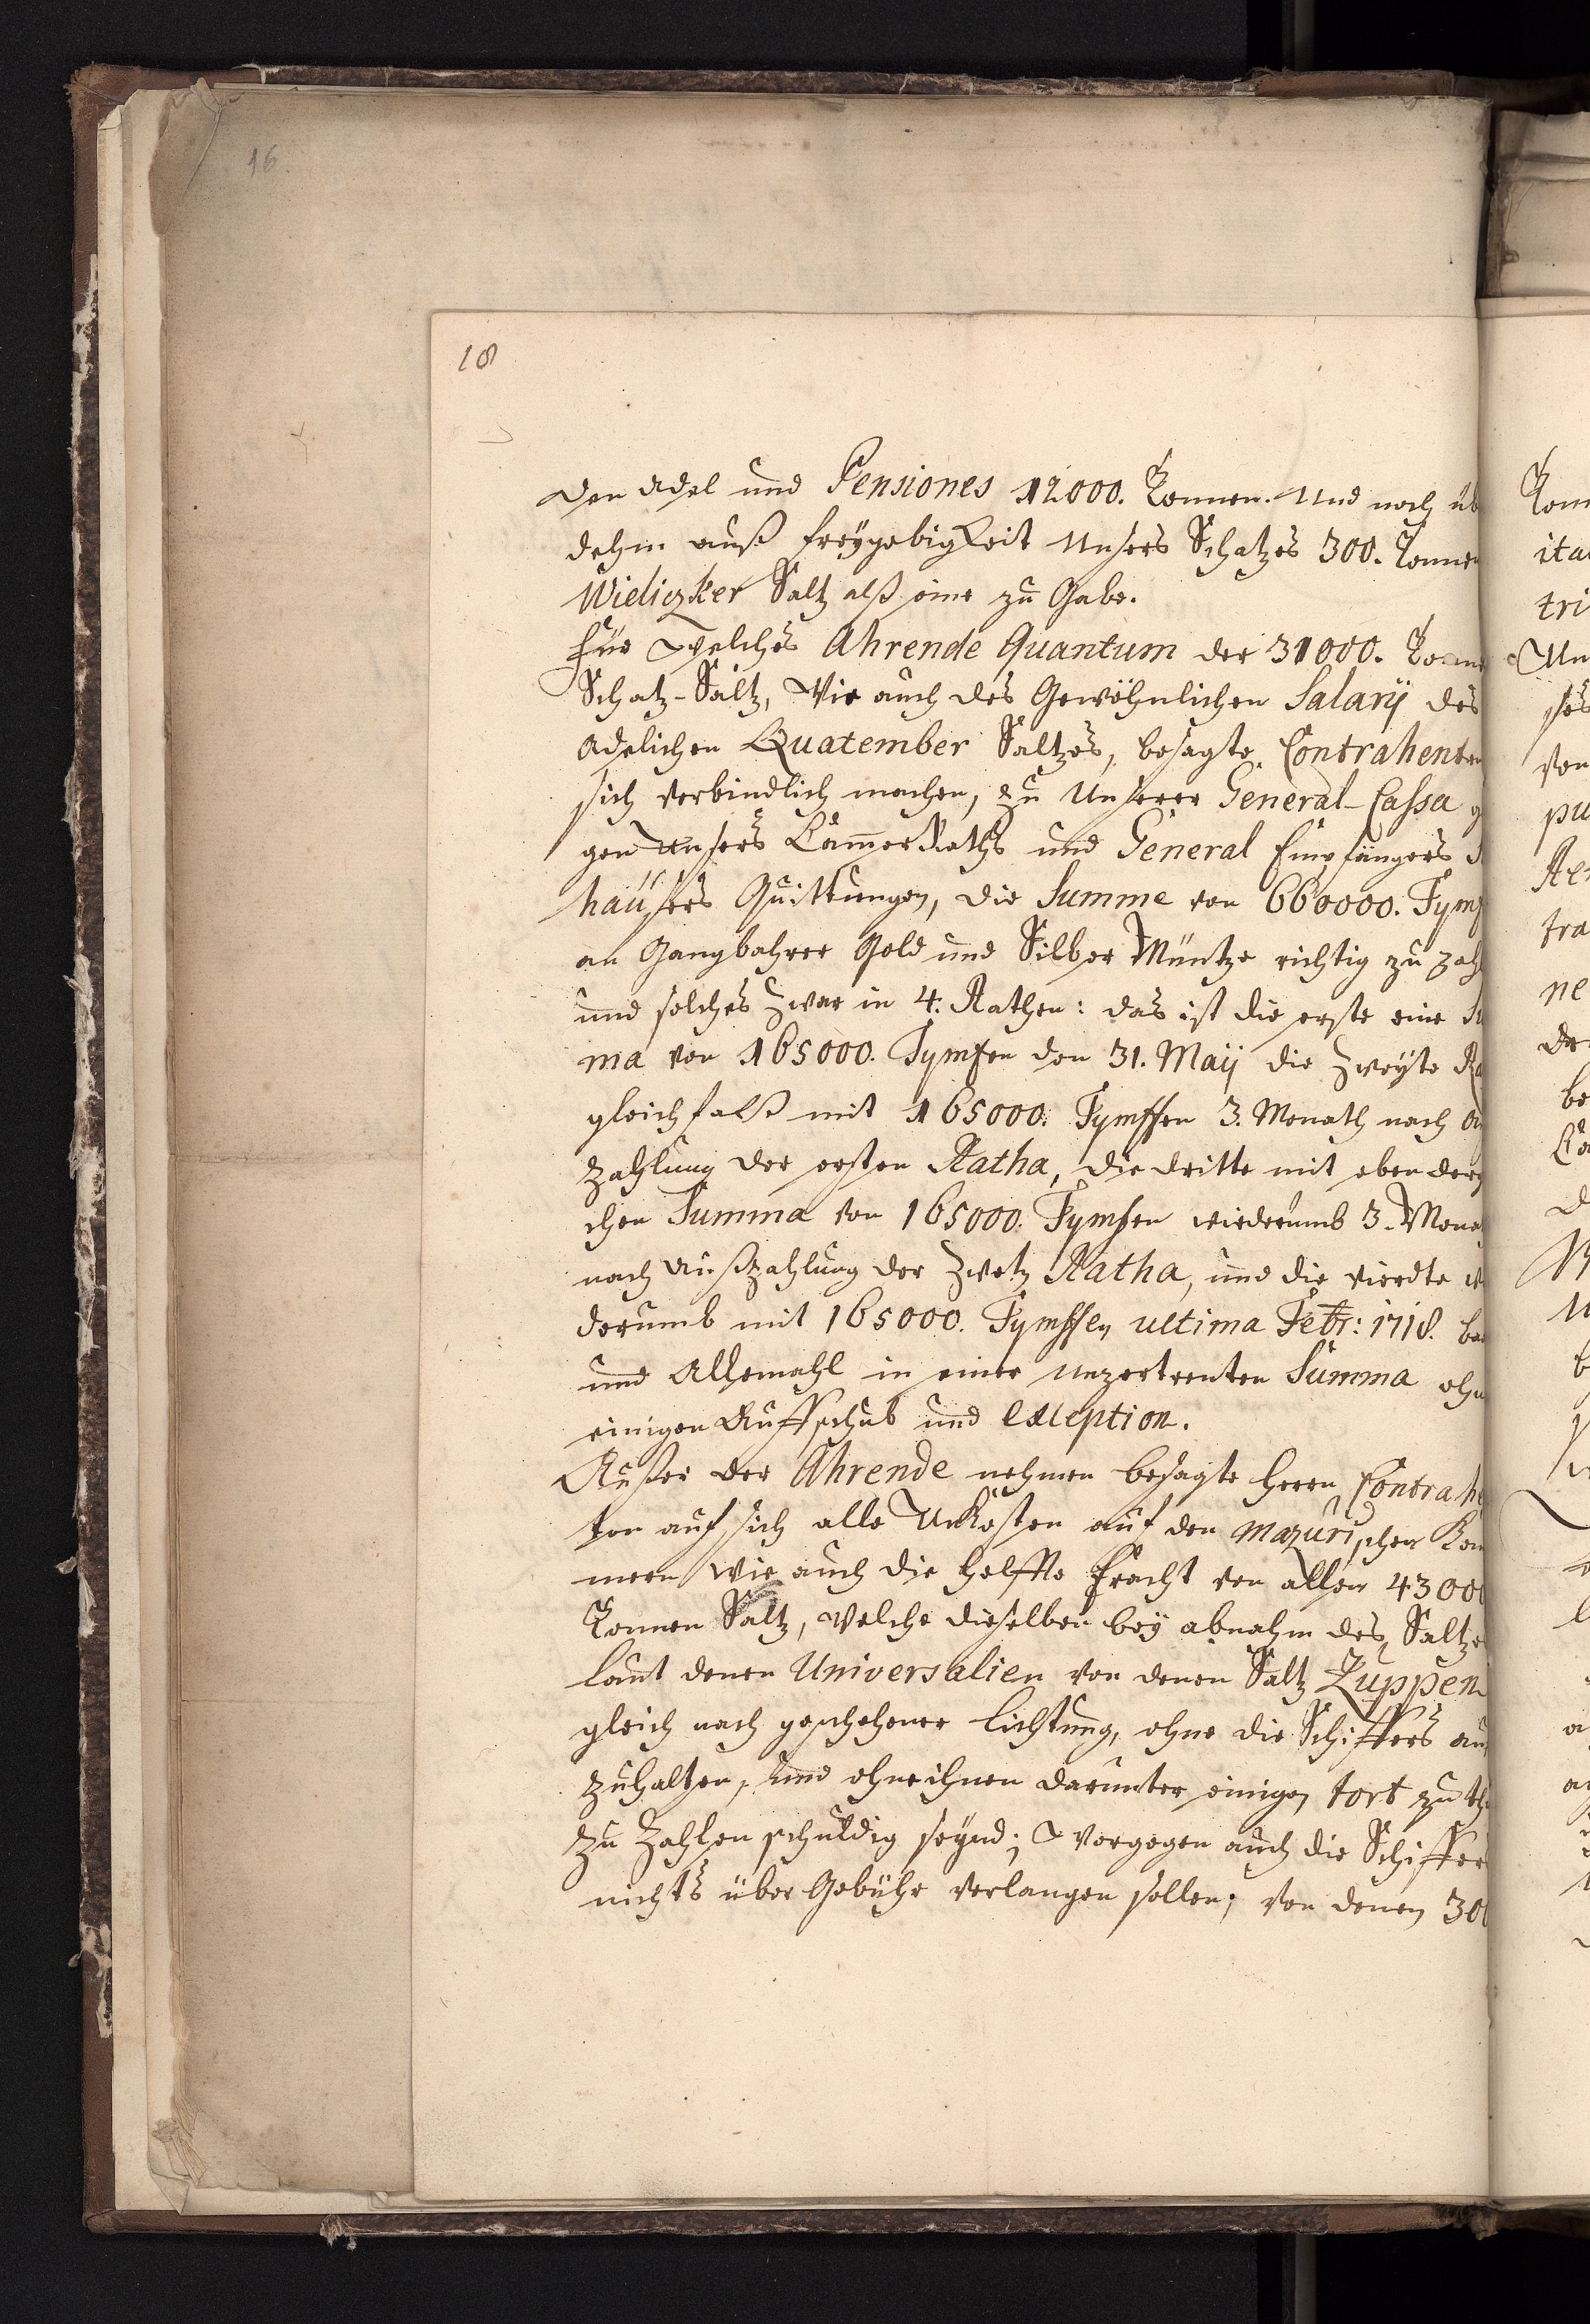 16
18
den Adel und Pensiones 12000. Tonnen. Und noch üb
dehm auß freygebigkeit Unsers Schatzes 300. Tonnen
Wieliczker Saltz alß eine zu Gabe.
Für welches Ahrende Quantum der 31000. Tonne
Schatz-Saltz, Wie auch des Gewöhnlichen Salarÿ des
Adelichen Quatember Saltzes, besagte Contrahenten
sich verbindlich machen, zu Unserer General-Cassa g
gen Unsers CammerRaths und General Empfängers
häusers Quittungen, die Summe von 660000. Tympf
an Gangbahrer Gold und Silber Müntze richtig zu zahl
und solches zwar in 4. Rathen: das ist die erste eine Su
ma von 165000. Tymfen den 31. Maÿ die Zweyte Ra
gleichfalß mit 165000. Tymffen 3. Monath nach A
zahlung der ersten Ratha, die dritte mit eben derg
chen Summa von 165000. Tymfen wiederumb 3. Mona
nach Außzahlung der Zwetz Ratha, und die vierdte w
derumb mit 165000. Tymffen ultima Febr: 1718. ba
und Allemahl in einer unzertrenten Summa ohn
einigen Auffschub und exception.
Außer der Ahrende nehmen besagte Herrn Contrahe
ten auf sich alle Unkosten auf den Mazurischen Kam
mern wie auch die helffte Fracht von allen 43000
Tonnen Saltz, welche dieselben bey abnahm des Saltze
laut denen Universalien von denen Saltz Zuppen
gleich nach geschehener Lichtung, ohne die Schiffers au
zuhalten, und ohne ihnen darunter einigen tort zu th
zu Zahlen schuldig seynd; Worgegen auch die Schiffer
nichts über Gebühr verlangen sollen; von denen 300
Ton
ita
tri
Un
ses
von
pu
tra
ne
de
be